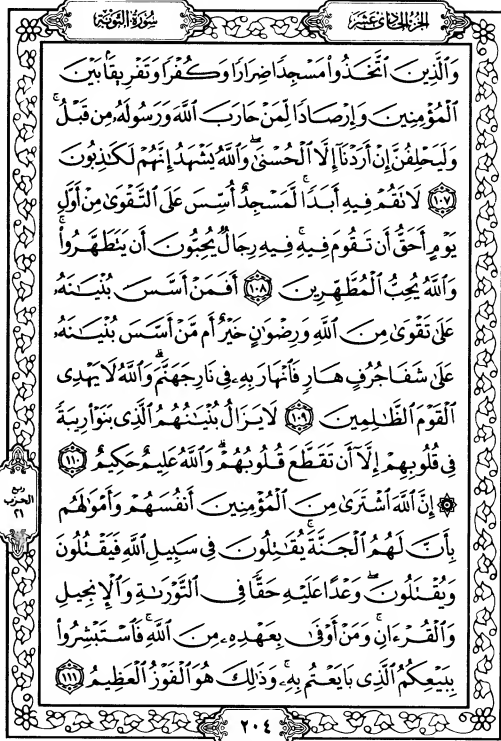 الجزء الحادي عشر
سورة التوبة
وَالَّذِينَ اتَّخَذُوا مَسْجِدًا ضِرَارًا وَكُفْرًا وَتَفْرِيقًا بَيْنَ
الْمُؤْمِنِينَ وَإِرْصَادًا لِّمَنْ حَارَبَ اللَّهَ وَرَسُولَهُ مِن قَبْلُ ۚ
وَلَيَحْلِفُنَّ إِنْ أَرَدْنَا إِلَّا الْحُسْنَىٰ ۖ وَاللَّهُ يَشْهَدُ إِنَّهُمْ لَكَاذِبُونَ
﴿١٠٧﴾ لَا تَقُمْ فِيهِ أَبَدًا ۚ لَّمَسْجِدٌ أُسِّسَ عَلَى التَّقْوَىٰ مِنْ أَوَّلِ
يَوْمٍ أَحَقُّ أَن تَقُومَ فِيهِ ۚ فِيهِ رِجَالٌ يُحِبُّونَ أَن يَتَطَهَّرُوا ۚ
وَاللَّهُ يُحِبُّ الْمُطَّهِّرِينَ ﴿١٠٨﴾ أَفَمَنْ أَسَّسَ بُنْيَانَهُ
عَلَىٰ تَقْوَىٰ مِنَ اللَّهِ وَرِضْوَانٍ خَيْرٌ أَم مَّنْ أَسَّسَ بُنْيَانَهُ
عَلَىٰ شَفَا جُرُفٍ هَارٍ فَانْهَارَ بِهِ فِي نَارِ جَهَنَّمَ ۗ وَاللَّهُ لَا يَهْدِي
الْقَوْمَ الظَّالِمِينَ ﴿١٠٩﴾ لَا يَزَالُ بُنْيَانُهُمُ الَّذِي بَنَوْا رِيبَةً
فِي قُلُوبِهِمْ إِلَّا أَن تَقَطَّعَ قُلُوبُهُمْ ۗ وَاللَّهُ عَلِيمٌ حَكِيمٌ ﴿١١٠﴾
۞ إِنَّ اللَّهَ اشْتَرَىٰ مِنَ الْمُؤْمِنِينَ أَنفُسَهُمْ وَأَمْوَالَهُم
بِأَنَّ لَهُمُ الْجَنَّةَ ۚ يُقَاتِلُونَ فِي سَبِيلِ اللَّهِ فَيَقْتُلُونَ
وَيُقْتَلُونَ ۖ وَعْدًا عَلَيْهِ حَقًّا فِي التَّوْرَاةِ وَالْإِنجِيلِ
وَالْقُرْآنِ ۚ وَمَنْ أَوْفَىٰ بِعَهْدِهِ مِنَ اللَّهِ ۚ فَاسْتَبْشِرُوا
بِبَيْعِكُمُ الَّذِي بَايَعْتُم بِهِ ۚ وَذَٰلِكَ هُوَ الْفَوْزُ الْعَظِيمُ ﴿١١١﴾
ربع
الحزب
٢١
٢٠٤